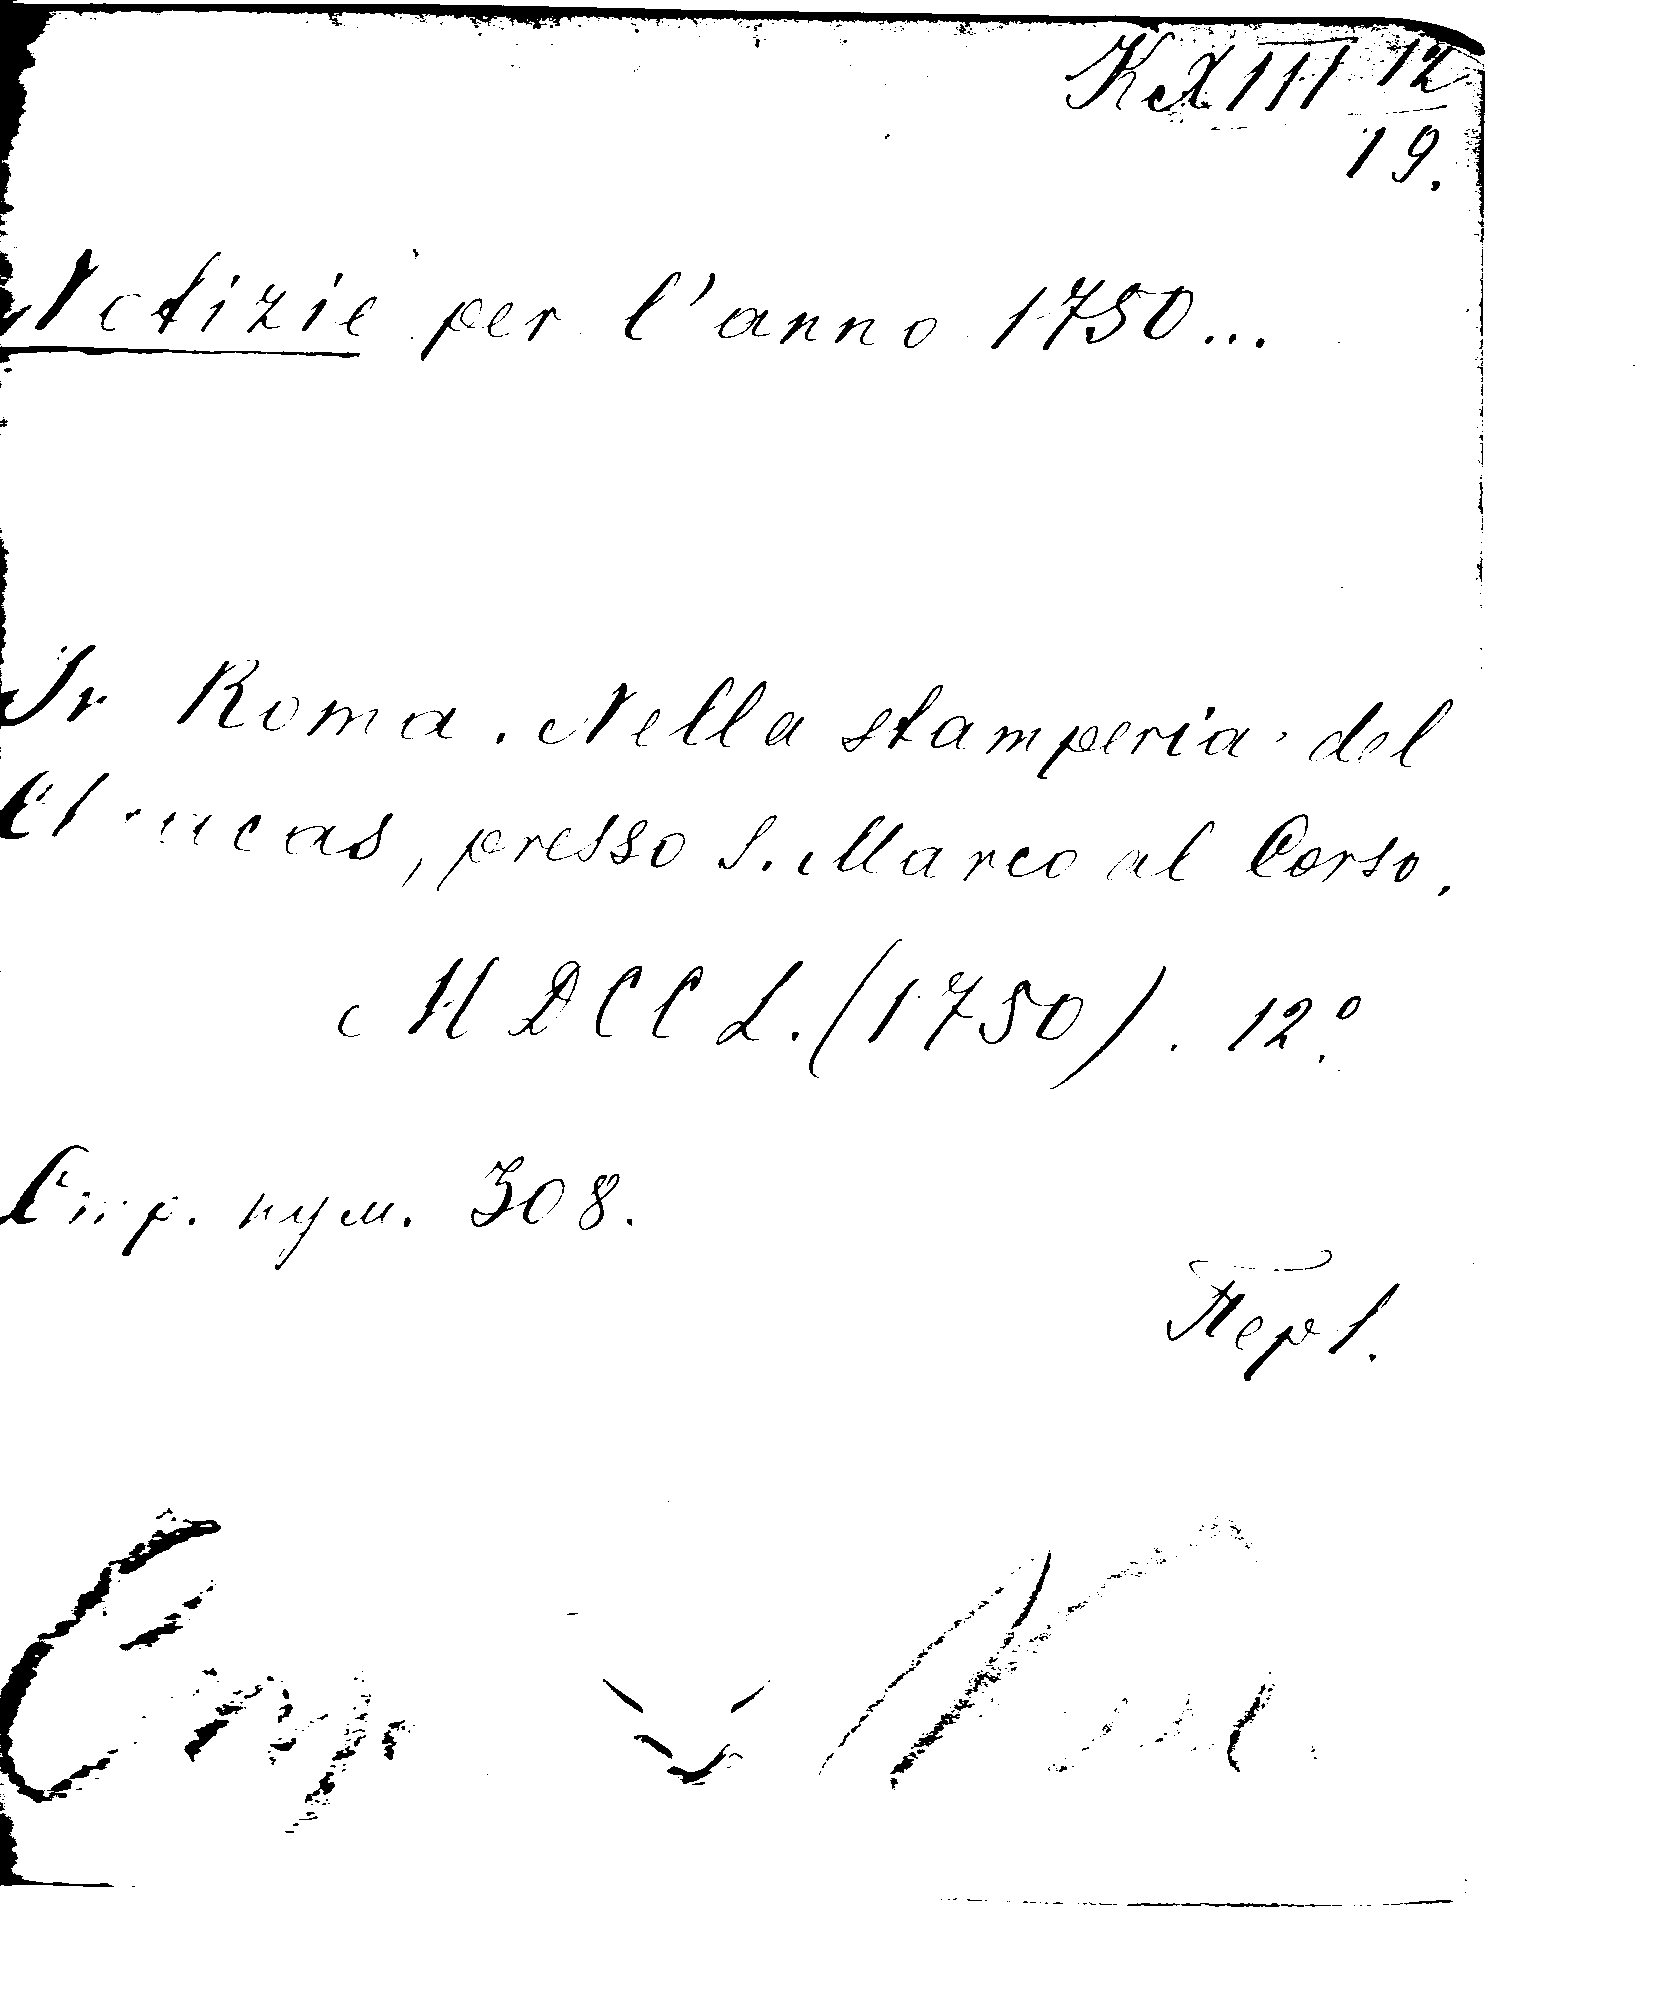 KXIII 12/19.
Notizie per l'anno 1750...
In Roma. Nella stamperia del
Chracas, presso S. Marco al Corso.
MDCCL. (1750). 12º.
Стр. нум. 308.
Пер 1.